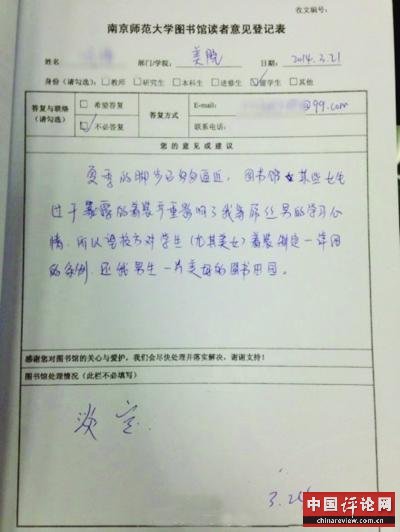 收文编号:
南京师范大学图书馆读者意见登记表
姓名 部门/学院: 美院 日期: 2014.3.21
身份(请勾选) □教师 □研究生 □本科生 □进修生 ☑留学生 □其他
答复与联络(请勾选) □希望答复 ☑不必答复 答复方式 E-mail: @99.com 联系电话:
您的意见或建议
夏季的脚步已匆匆逼近,图书馆女某些女生
过于暴露的着装严重影响了我等屌丝男的学习心
情,所以望校方对学生(尤其美女)着装制定一详细
的条例,还我男生一片美好的图书田园。
感谢您对图书馆的关心与爱护,我们会尽快处理并落实解决,谢谢支持!
图书馆处理情况(此栏不必填写)
淡定.
3.24
中国评论网
chinareview.com